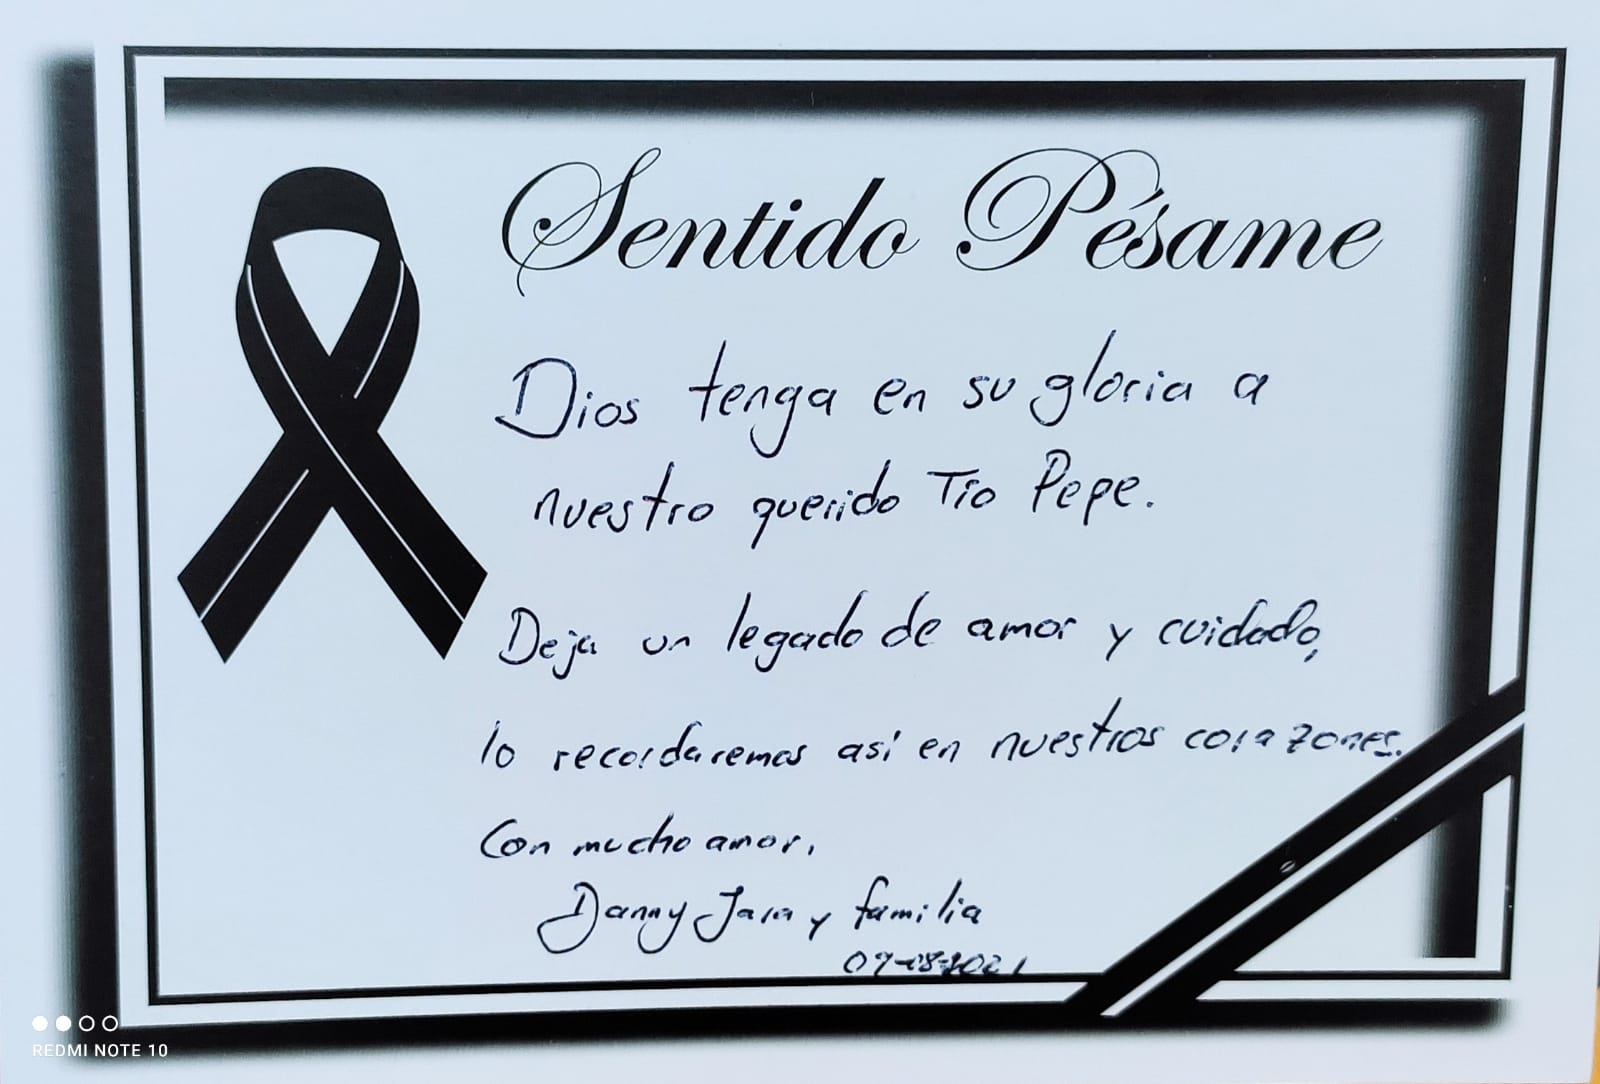 Sentido Pésame
Dios tenga en su gloria a
nuestro querido Tío Pepe.
Deja un legado de amor y cuidado,
lo recordaremos así en nuestros corazones.
Con mucho amor,
Danny Jara y familia
REDMI NOTE 10